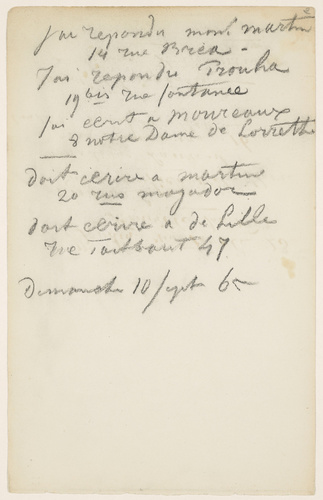 J'ai repondu mons martin
14 rue Brea.
J'ai repondu Trouha
19 bis rue fontanee
J'ai ecrit a moureaux
8 notre Dame de Lorrette
doit ecrire a martin
20 rue mogador
doit ecrire a de Lille
rue Taitbout 47
Dimanche 10 sept 65